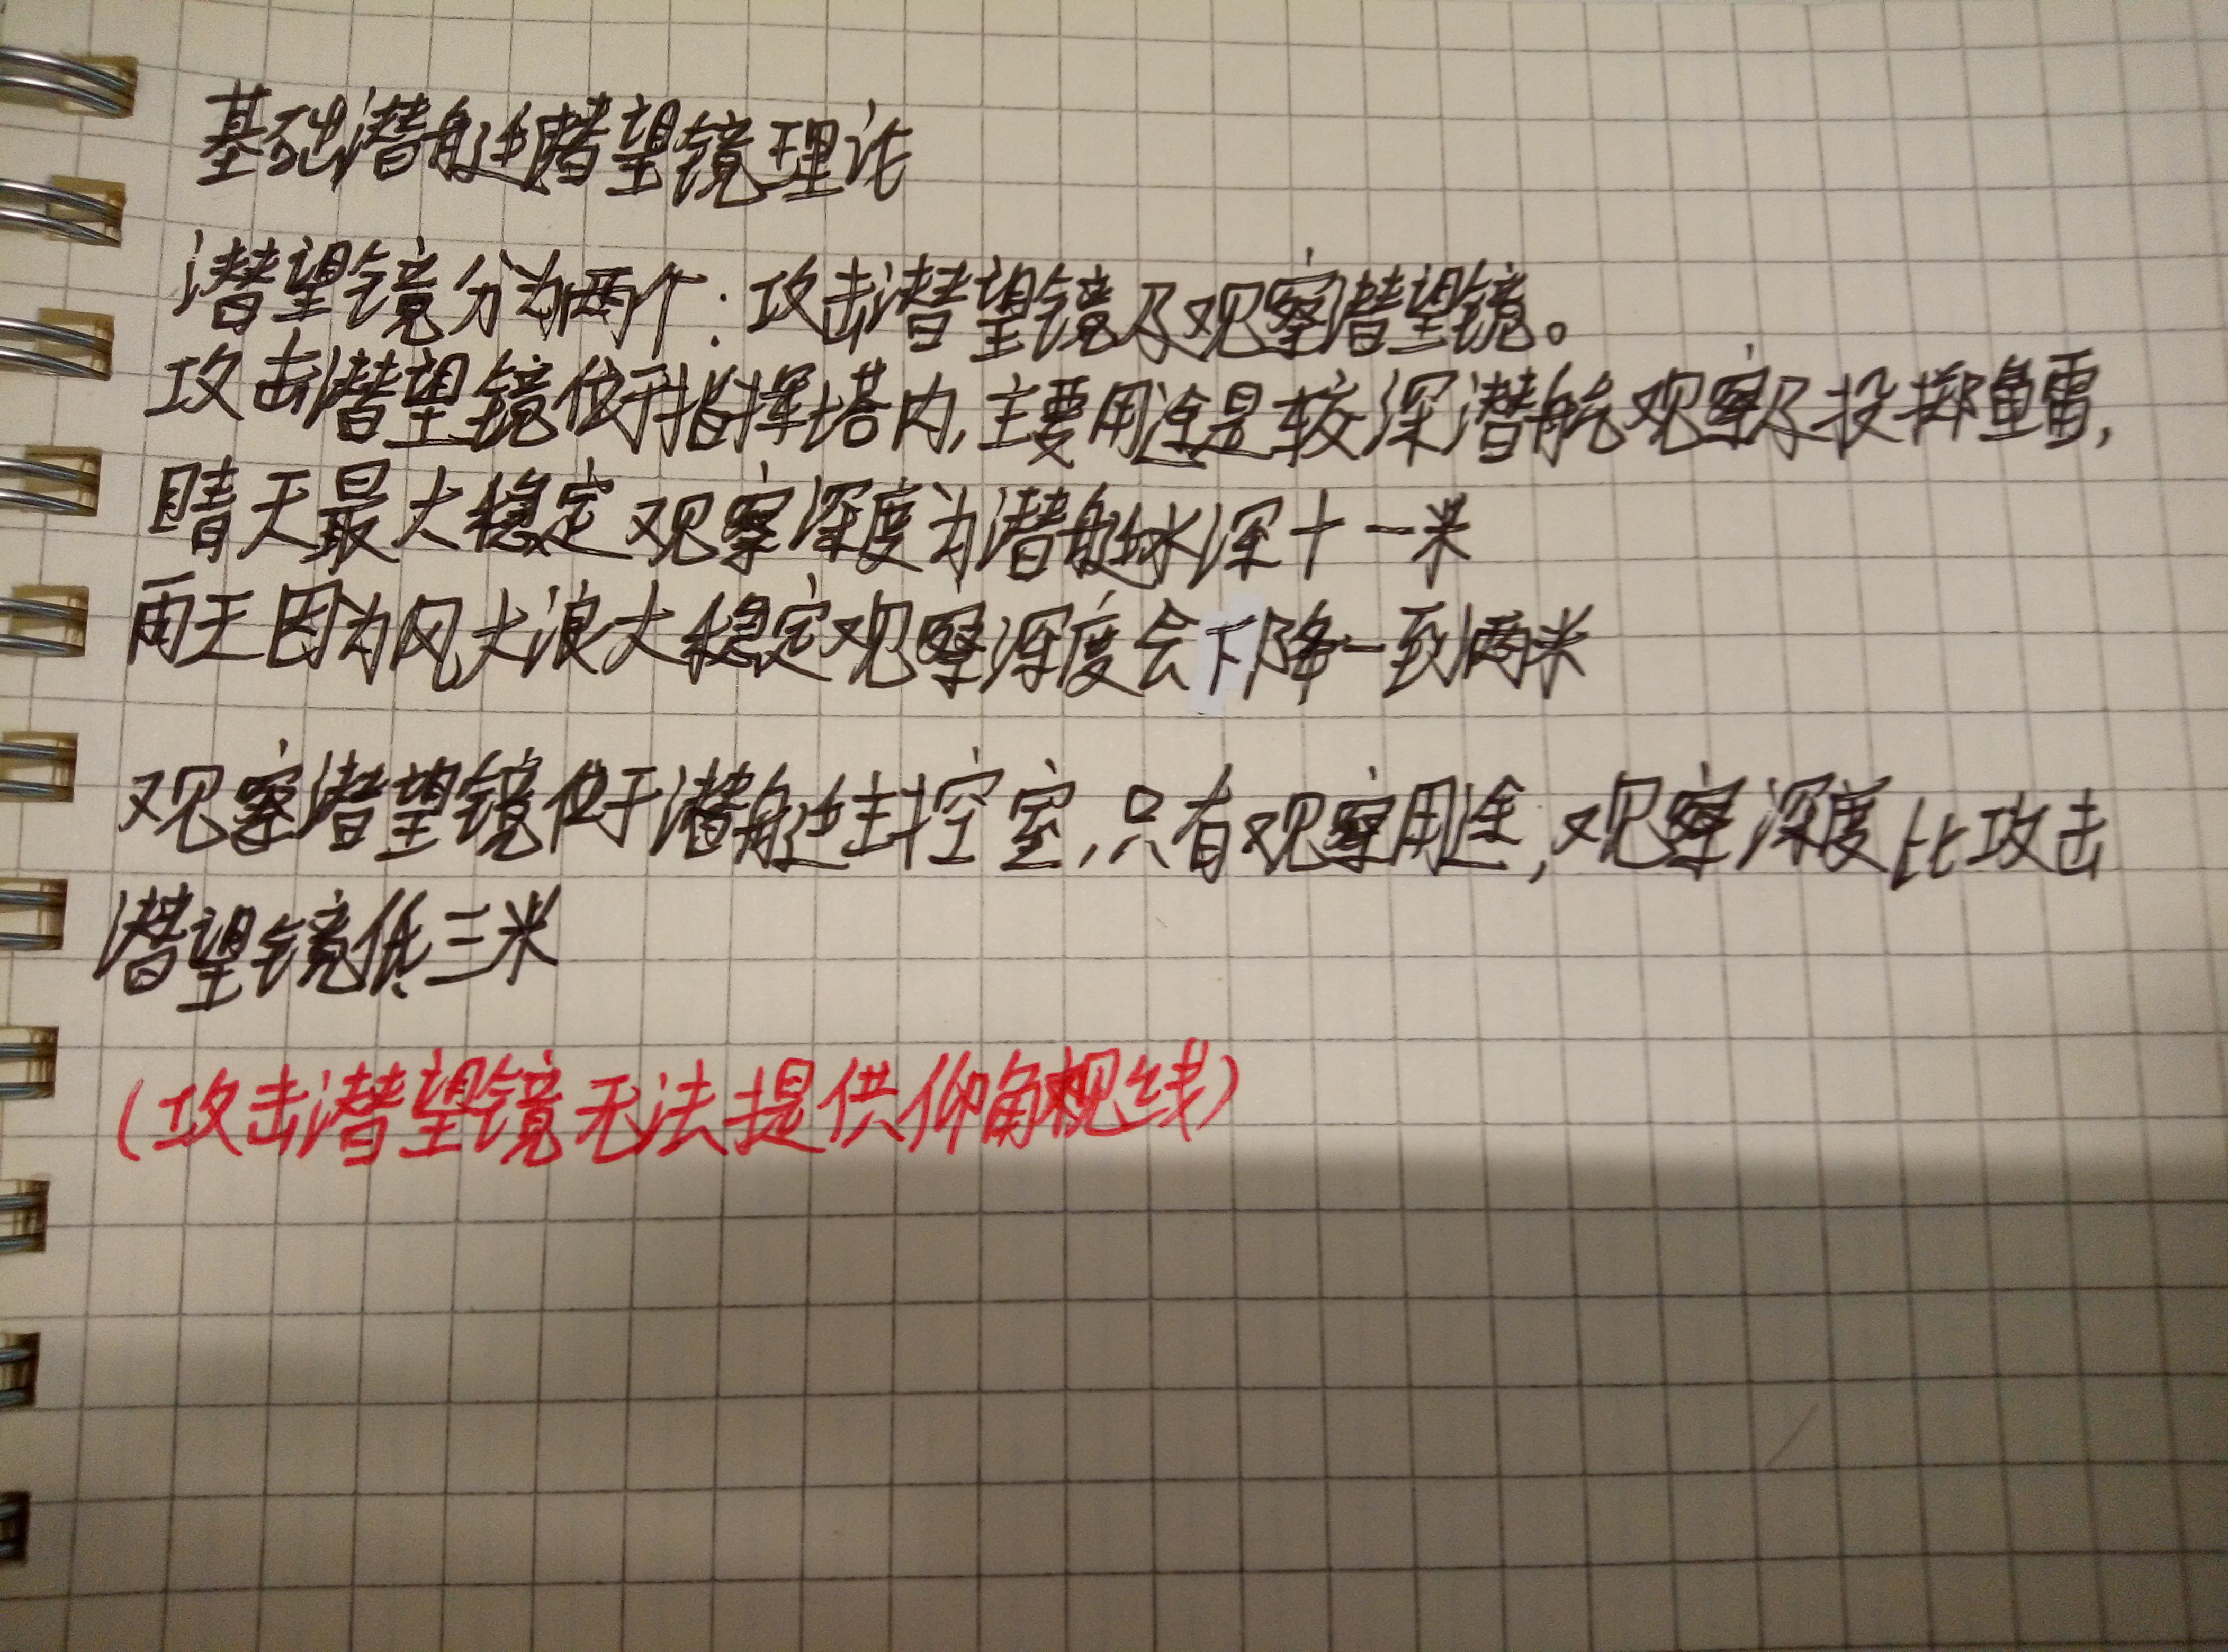 基础潜艇潜望镜理论
潜望镜分为两个：攻击潜望镜及观察潜望镜。
攻击潜望镜位于指挥塔内，主要用途是较深潜航观察及投掷鱼雷，
晴天最大稳定观察深度为潜艇水深十一米
雨天因为风大浪大稳定观察深度会下降一到两米
观察潜望镜位于潜艇主控室，只有观察用途，观察深度比攻击
潜望镜低三米
（攻击潜望镜无法提供仰角视线）